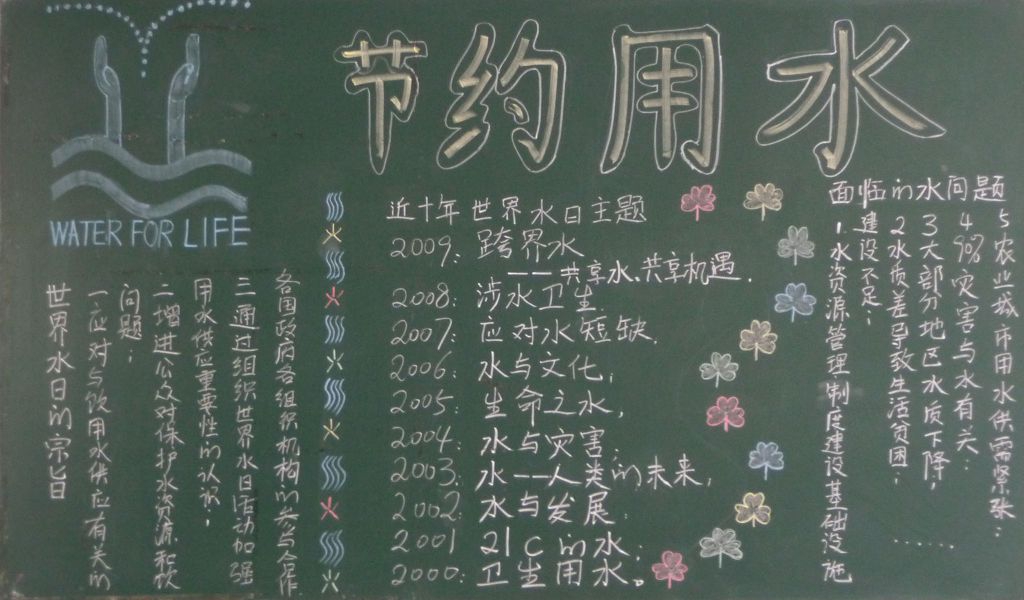 节约用水
WATER FOR LIFE
世界水日的宗旨
一应对与饮用水供应有关的
问题；
二增进公众对保护水资源和饮
用水供应重要性的认识，
三通过组织世界水日活动加强
各国政府各组织机构的参与合作
近十年世界水日主题
2009：跨界水
——共享水、共享机遇．
2008：涉水卫生．
2007：应对水短缺．
2006：水与文化，
2005：生命之水，
2004：水与灾害；
2003：水——人类的未来，
2002：水与发展．
2001：21C的水；
2000：卫生用水。
面临的水问题
1．水资源管理制度建设基础设施
建设不足；
2水质差导致生活贫困；
3大部分地区水质下降；
4 90%灾害与水有关；
5农业城市用水供需紧张；
……